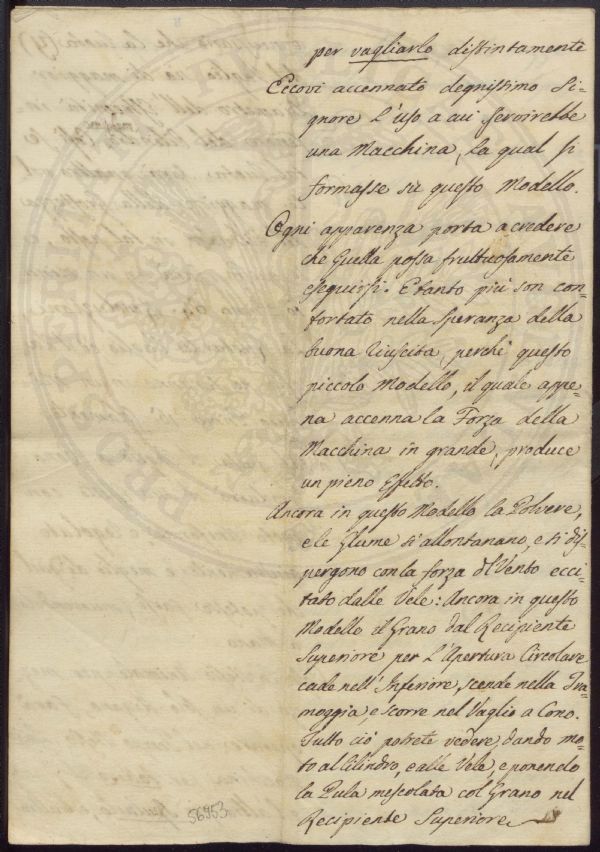 per vagliarlo distintamente
Eccovi accennato degnissimo Si-
gnore l'uso a cui servirebbe
una Macchina, la qual si
formasse su questo Modello.
Ogni apparenza porta a credere
che Quella possa fruttuosamente
eseguirsi. E tanto più son con-
fortato nella Speranza della
buona riuscita, perchè questo
piccolo Modello, il quale appe-
na accenna la Forza della
Macchina in grande, produce
un pieno Effetto.
Ancora in questo Modello la Polvere,
e le Glume si allontanano, e si dis-
pergono con la forza del Vento ecci-
tato dalle Vele: Ancora in questo
Modello il Grano dal Recipiente
Superiore per l'Apertura Circolare
cade nell'Inferiore, scende nella Tra-
moggia, e scorre nel Vaglio a Cono.
Tutto ciò potrete vedere, dando mo-
to al Cilindro, e alle Vele, e ponendo
la Pula mescolata col Grano nel
Recipiente Superiore
56953